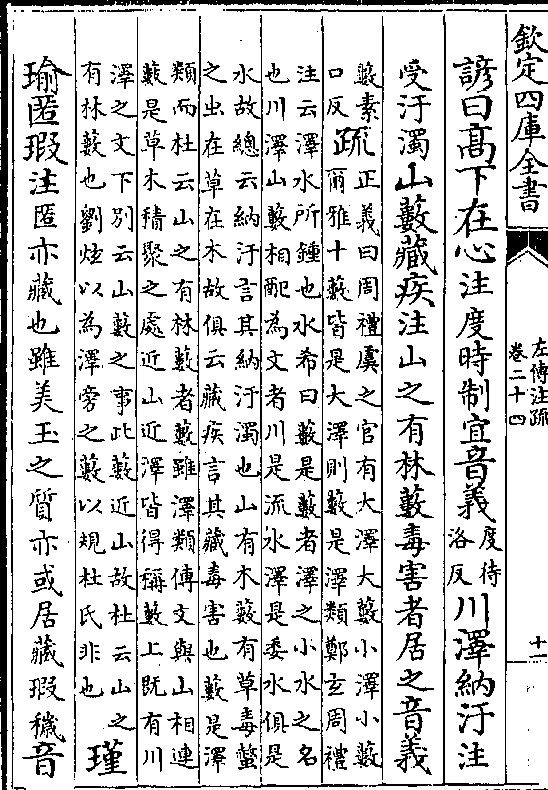 欽定四庫全書
左傳注疏
卷二十四
十一
諺曰髙下在心注度時制宜音義度待洛反川澤納汙注
受汙濁山藪藏疾注山之有林藪毒害者居之音義
藪素口反疏正義曰周禮虞之官有大澤大藪小澤小藪
爾雅十藪皆是大澤則藪是澤類鄭玄周禮
注云澤水所鍾也水希曰藪是藪者澤之小水之名
也川澤山藪相配為文者川是流水澤是委水俱是
水故總云納汙言其納汙濁也山有木藪有草毒螫
之虫在草在木故俱云藏疾言其藏毒害也藪是澤
類而杜云山之有林藪者藪雖澤類傳文與山相連
藪是草木積聚之處近山近澤皆得稱藪上既有川
澤之文下別云山藪之事此藪近山故杜云山之
有林藪也劉炫以為澤旁之藪以規杜氏非也
瑾
瑜匿瑕注匿亦藏也雖美玉之質亦或居藏瑕穢音